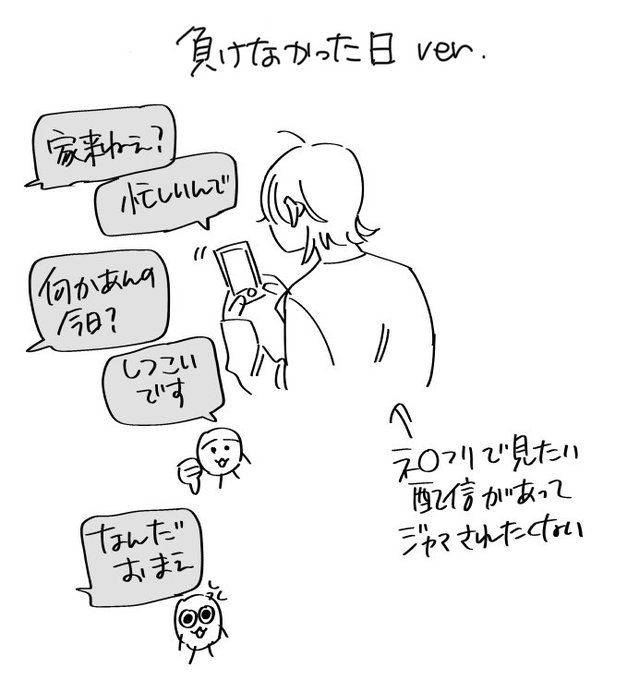 負けなかった日 ver.
家来ねぇ?
忙しいんで
何かあんの
今日?
しつこい
です
なんだ
おまえ
ネ〇フリで見たい
配信があって
ジャマされたくない